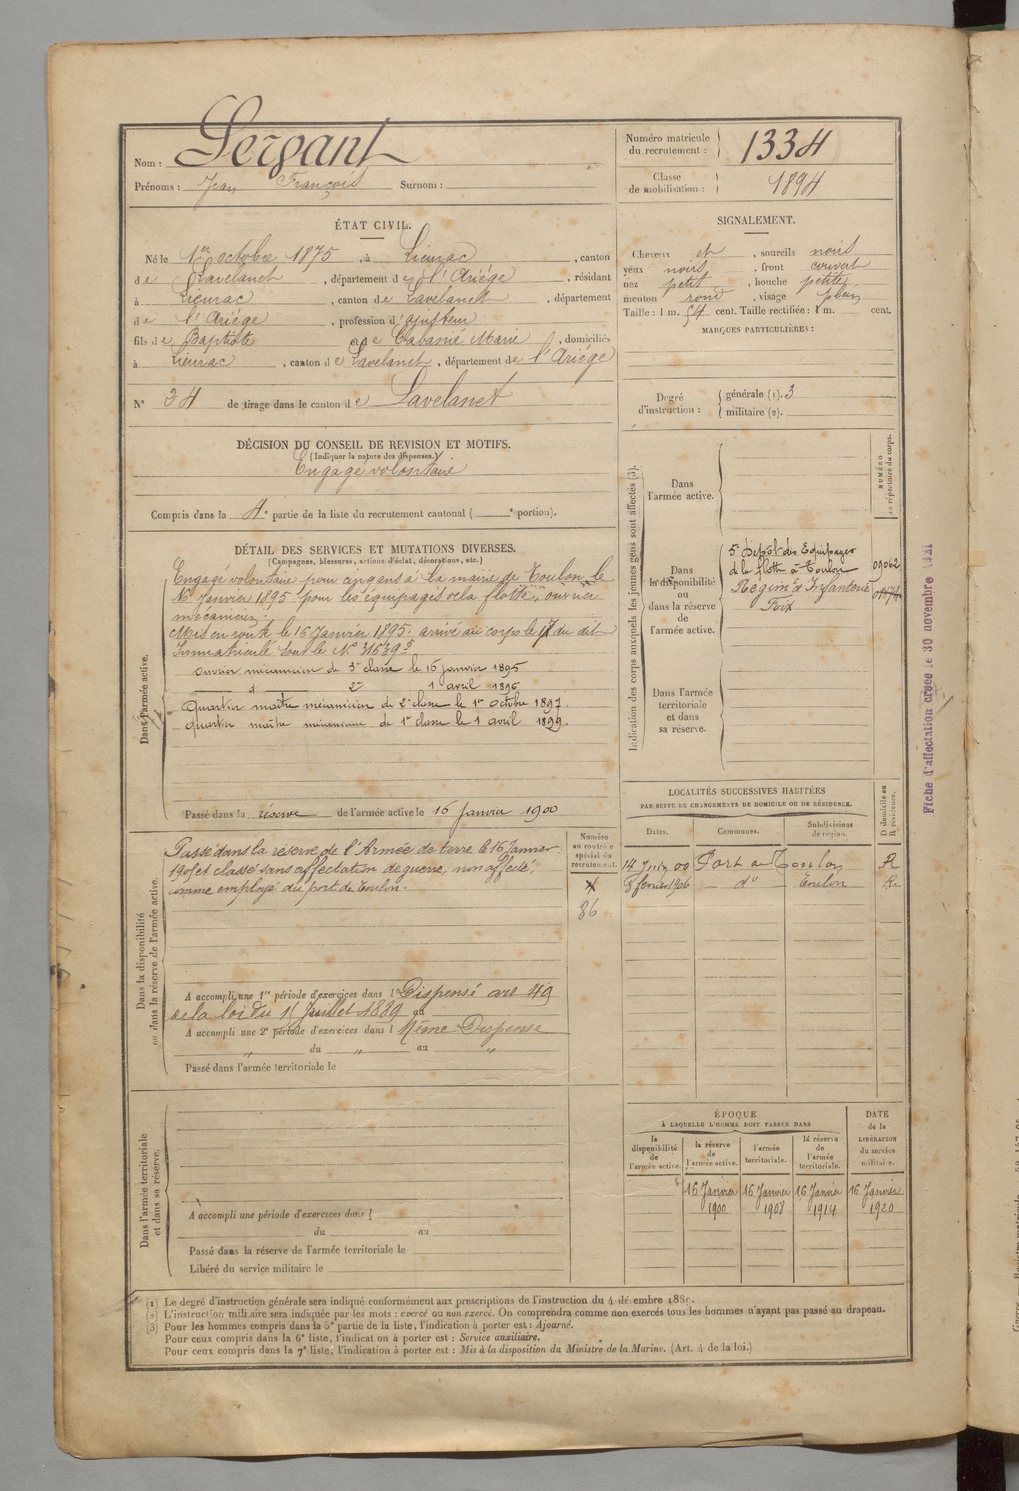 Nom : Sergant
Prénoms : Jean François Surnom :
Numéro matricule du recrutement : 1334
Classe de mobilisation : 1894
ÉTAT CIVIL.
Né le 1er octobre 1875, à Lieurac, canton
de Lavelanet, département de l'Ariége, résidant
à Lieurac, canton de Lavelanet, département
de l'Ariége, profession d'ajusteur
fils de Baptiste et de Cabanié Marie, domiciliés
à Lieurac, canton de Lavelanet, département de l'Ariége
N° 34 de tirage dans le canton de Lavelanet
SIGNALEMENT.
Cheveux et, sourcils noirs
yeux noirs, front couvert
nez petit, bouche petite
menton rond, visage plein
Taille : 1 m. 54 cent. Taille rectifiée : 1 m. cent.
MARQUES PARTICULIÈRES :
Degré d'instruction : générale (1). 3
militaire (2).
DÉCISION DU CONSEIL DE REVISION ET MOTIFS.
(Indiquer la nature des dispenses.)
Engagé volontaire
Compris dans la 4e partie de la liste du recrutement cantonal ( e portion).
DÉTAIL DES SERVICES ET MUTATIONS DIVERSES.
(Campagnes, blessures, actions d'éclat, décorations, etc.)
Dans l'armée active.
Engagé volontaire pour cinq ans à la mairie de Toulon le
16 Janvier 1895 pour les équipages de la flotte, ouvrier
mécanicien.
Mis en route le 16 Janvier 1895. arrivé au corps le 17 du dit
Immatriculé sous le N° 31639
ouvrier mécanicien de 3e classe le 16 janvier 1895
d° 2e 1 avril 1896
Quartier maître mécanicien de 2e classe le 1er octobre 1897.
quartier maître mécanicien de 1re classe le 1 avril 1899.
Passé dans la réserve de l'armée active le 16 Janvier 1900
Indication des corps auxquels les jeunes gens sont affectés (3).
NUMÉRO au répertoire du corps.
Dans l'armée active.
Dans la disponibilité ou dans la réserve de l'armée active.
5e Dépôt des Equipages
de la flotte à Toulon 09062
Régimt d'Infanterie
Foix
Dans l'armée territoriale et dans sa réserve.
LOCALITÉS SUCCESSIVES HABITÉES
PAR SUITE DE CHANGEMENTS DE DOMICILE OU DE RÉSIDENCE.
Dates. Communes. Subdivisions de région. D domicile ou R résidence.
14 Juin 00 Port a Toulon R
8 février 1906 d° Toulon R.
Dans la disponibilité ou dans la réserve de l'armée active.
Numéro au contrôle spécial du recrutement.
86
Passé dans la réserve de l'Armée de terre le 16 Janvier
1905 et classé sans affectation de guerre, non affecté,
comme employé du port de Toulon.
A accompli une 1re période d'exercices dans l Dispensé art 49
de la loi du 15 Juillet 1889 au
A accompli une 2e période d'exercices dans l Même Dispense
" du " au "
Passé dans l'armée territoriale le
Dans l'armée territoriale et dans sa réserve.
A accompli une période d'exercices dans l
du au
Passé dans la réserve de l'armée territoriale le
Libéré du service militaire le
ÉPOQUE
À LAQUELLE L'HOMME DOIT PASSER DANS
la disponibilité de l'armée active. la réserve de l'armée active. l'armée territoriale. la réserve de l'armée territoriale. DATE de la LIBÉRATION du service militaire.
16 Janvier 1900 16 Janvier 1908 16 Janvier 1914 16 Janvier 1920
(1) Le degré d'instruction générale sera indiqué conformément aux prescriptions de l'instruction du 4 décembre 1889.
(2) L'instruction militaire sera indiquée par les mots : exercé ou non exercé. On comprendra comme non exercés tous les hommes n'ayant pas passé au drapeau.
(3) Pour les hommes compris dans la 5e partie de la liste, l'indication à porter est : Ajourné.
Pour ceux compris dans la 6e liste, l'indication à porter est : Service auxiliaire.
Pour ceux compris dans la 7e liste, l'indication à porter est : Mis à la disposition du Ministre de la Marine. (Art. 4 de la loi.)
Fiche d'affectation créée le 30 novembre 1921